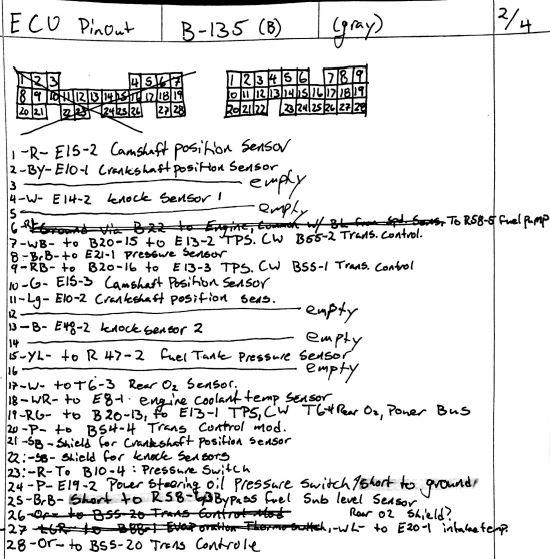 ECU Pinout B-135 (B) (gray) 2/4
1 2 3 4 5 6 7 1 2 3 4 5 6 7 8 9
8 9 10 11 12 13 14 15 16 17 18 19 10 11 12 13 14 15 16 17 18 19
20 21 22 23 24 25 26 27 28 20 21 22 23 24 25 26 27 28
1 -R- E15-2 Camshaft position Sensor
2 -BY- E10-1 Crankshaft position Sensor
3 empty
4 -W- E14-2 knock Sensor 1
5 empty
6 Ground via B22 to Engine, Common w/ BL from Spd. Sens. To R58-5 Fuel pump
7 -WB- to B20-15 to E13-2 TPS. CW B55-2 Trans. Control.
8 -BrB- to E21-1 pressure Sensor
9 -RB- to B20-16 to E13-3 TPS. CW B55-1 Trans. Control
10 -G- E15-3 Camshaft Position Sensor
11 -Lg- E10-2 Crankshaft position sens.
12 empty
13 -B- E48-2 knock sensor 2
14 empty
15 -YL- to R 47-2 Fuel Tank Pressure Sensor
16 empty
17 -W- to T6-3 Rear O2 Sensor.
18 -WR- to E8-1 engine Coolant temp Sensor
19 -RG- to B20-13, to E13-1 TPS, CW T6-4 Rear O2, Power Bus
20 -P- to B54-4 Trans Control mod.
21 -SB- Shield for Crankshaft position sensor
22:-SB- Shield for knock Sensors
23:-R- To B10-4: Pressure Switch
24 -P- E19-2 Power Steering oil Pressure Switch/short to ground
25 -BrB- Short to R58-3 Bypass fuel Sub level Sensor
26 -Or- to B55-20 Trans Control Mod Rear O2 Shield?
27 -LGR- to B88-1 Evaporation Thermo Switch, -WL- to E20-1 intake temp.
28 -Or- to B55-20 Trans Controle